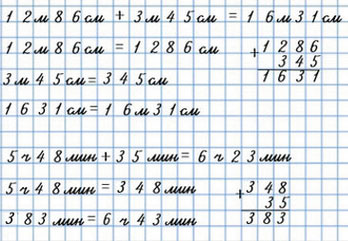 12м86см + 3м45см = 16м31см
12м86см = 1286см
+1286
345
1631
3м45см = 345см
1631см = 16м31см
5ч48мин + 35мин = 6ч23мин
5ч48мин = 348мин
+348
35
383
383мин = 6ч43мин